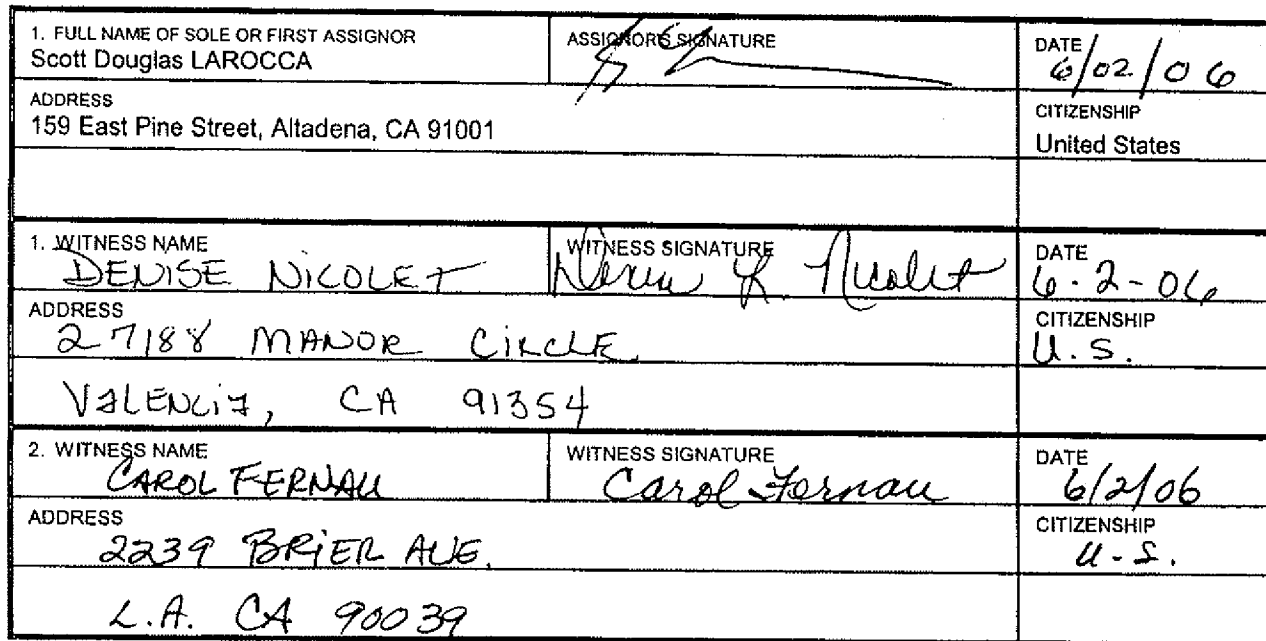 1. FULL NAME OF SOLE OR FIRST ASSIGNOR
Scott Douglas LAROCCA
ASSIGNOR'S SIGNATURE
DATE
6/02/06
ADDRESS
159 East Pine Street, Altadena, CA 91001
CITIZENSHIP
United States
1. WITNESS NAME
DENISE NICOLET
WITNESS SIGNATURE
Nicolet
DATE
6-2-06
ADDRESS
27188 MANOR CIRCLE
VALENCIA, CA 91354
CITIZENSHIP
U.S.
2. WITNESS NAME
CAROL FERNAU
WITNESS SIGNATURE
Carol Fernau
DATE
6/2/06
ADDRESS
2239 BRIER AVE.
L.A. CA 90039
CITIZENSHIP
U.S.